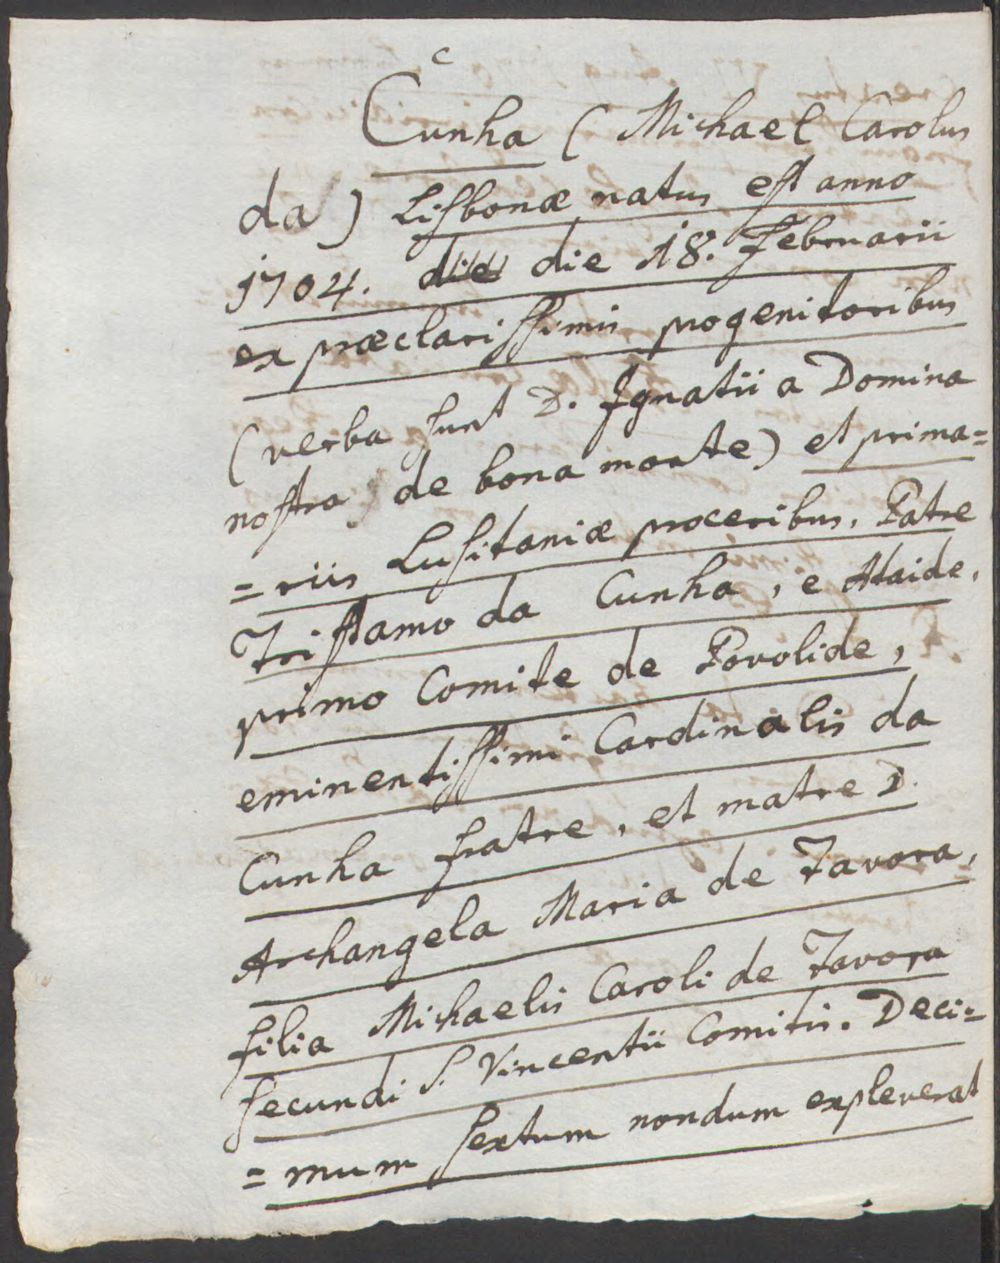 c
Cunha ( Michael Carolus
da ) Lisbonæ natus est anno
1704. die die 18. Februarii
ex præclarissimis progenitoribus
(verba sunt D. Ignatii a Domina
nostra de bona morte) et prima=
=riis Lusitaniæ proceribus, Patre
Tristamo da Cunha, e Ataide,
primo Comite de Povolide,
eminentissimi Cardinalis da
Cunha fratre, et matre D.
Archangela Maria de Tavora,
filia Michaelis Caroli de Tavora
secundi S. Vincentii Comitis. Deci=
=mum sextum nondum expleverat